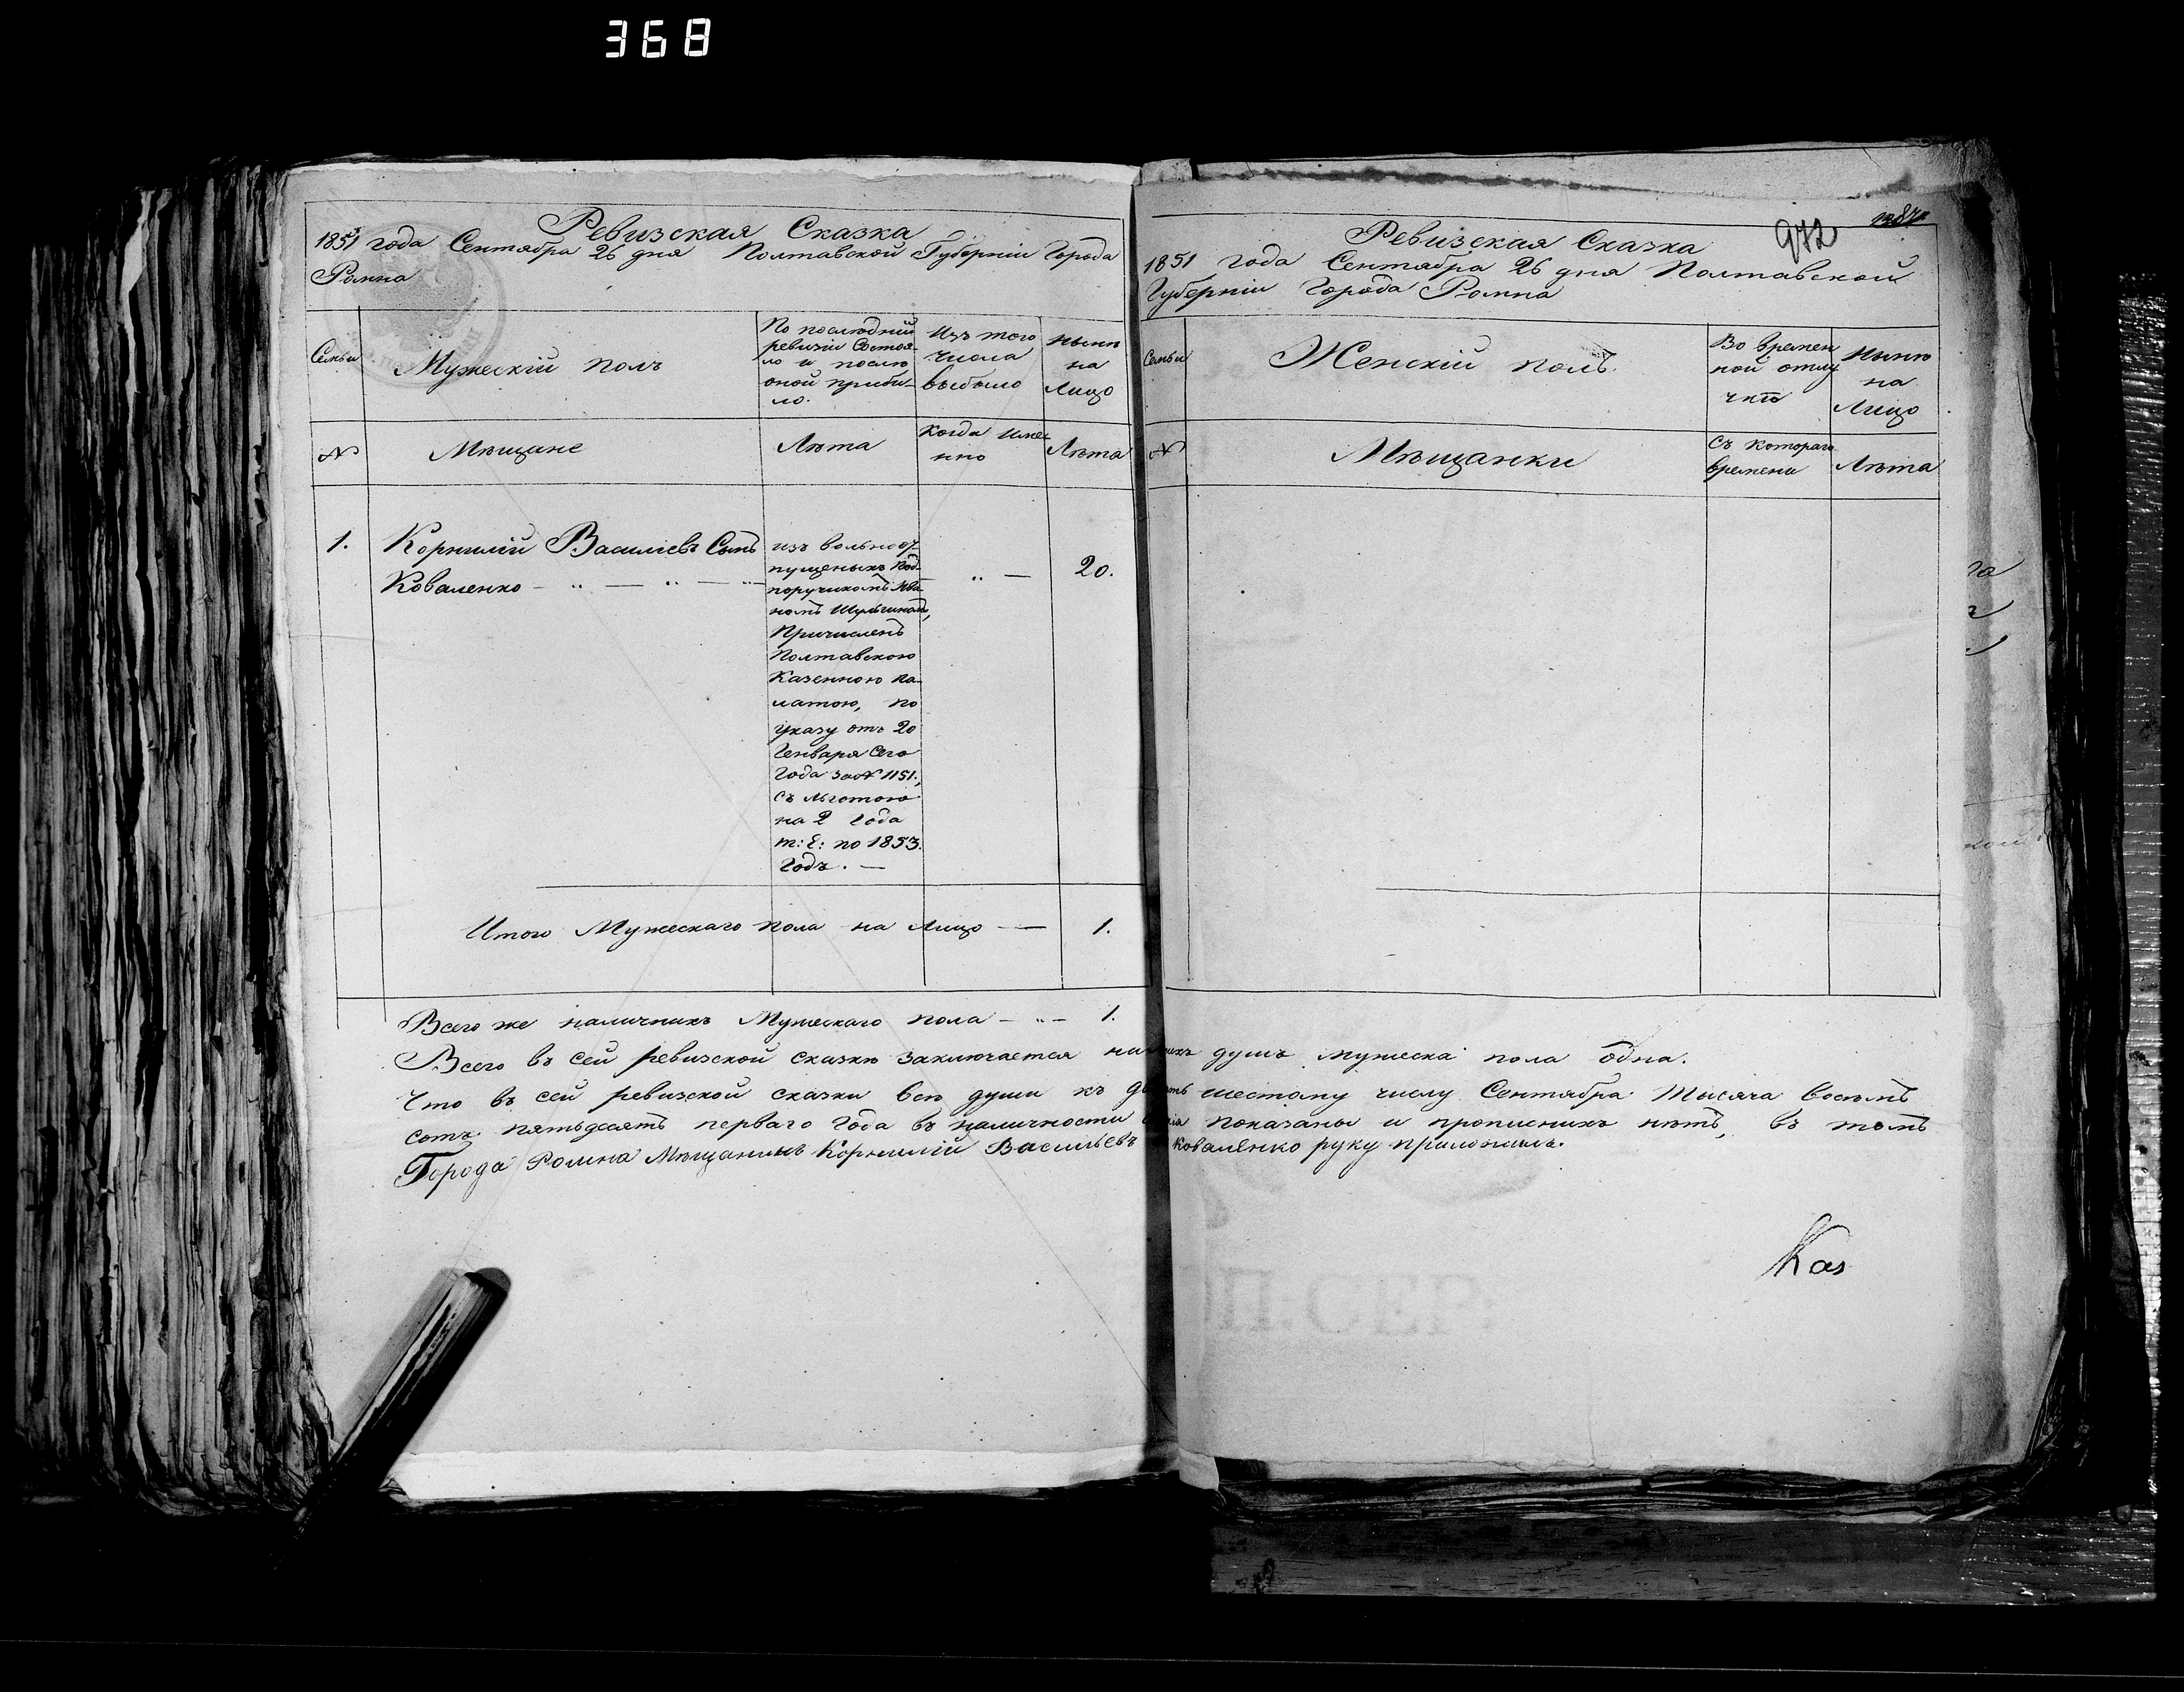 368
Ревизская Сказка
1851 года Сентября 26 дня Полтавской Губерніи Города
Ромна
Семьи
Мужескій полъ
По послѣдній
ревизіи состоя-
ло и послѣ
оной прибы-
ло.
Изъ того
числа
выбыло
Нынѣ
на
Лицо
№
Мѣщане
Лѣта
Когда имен
нно
Лѣта
1.
Корнилій Василіевъ Сынъ
Коваленко - " — " — " —
изъ вольноот-
пущеныхъ Под-
поручикомъ Ива-
номъ Шульгинымъ,
Причисленъ
Полтавскою
Казенною па-
латою, по
указу отъ 20
Генваря сего
года за № 1151.,
съ льготою
на 2 года
т: е: по 1853.
годъ. —
" —
20.
Итого Мужескаго пола на лицо —
1.
972
Ревизская Сказка
1851 года Сентября 26 дня Полтавской
Губерніи Города Ромна
Семьи
Женскій полъ
Во времен
ной отлу
чкѣ
Нынѣ
на
Лицо
№
Мѣщанки
Съ котораго
времени
Лѣта
Всего же наличныхъ Мужескаго пола - " - 1.
Всего въ сей ревизской сказкѣ заключается душъ мужеска пола одна.
Что въ сей ревизской сказки всѣ души къ шестому числу Сентября Тысяча восемъ
сотъ пятьдесятъ перваго года въ наличности показаны и прописныхъ нѣтъ, въ томъ
Города Ромна Мѣщанинъ Корнилій Васильевъ Коваленко руку приложилъ.
Каз